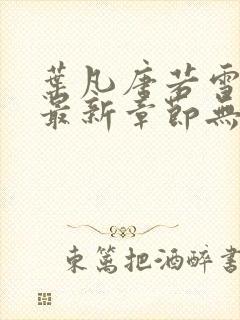 葉凡唐若雪
最新章節無
東籬把酒醉書